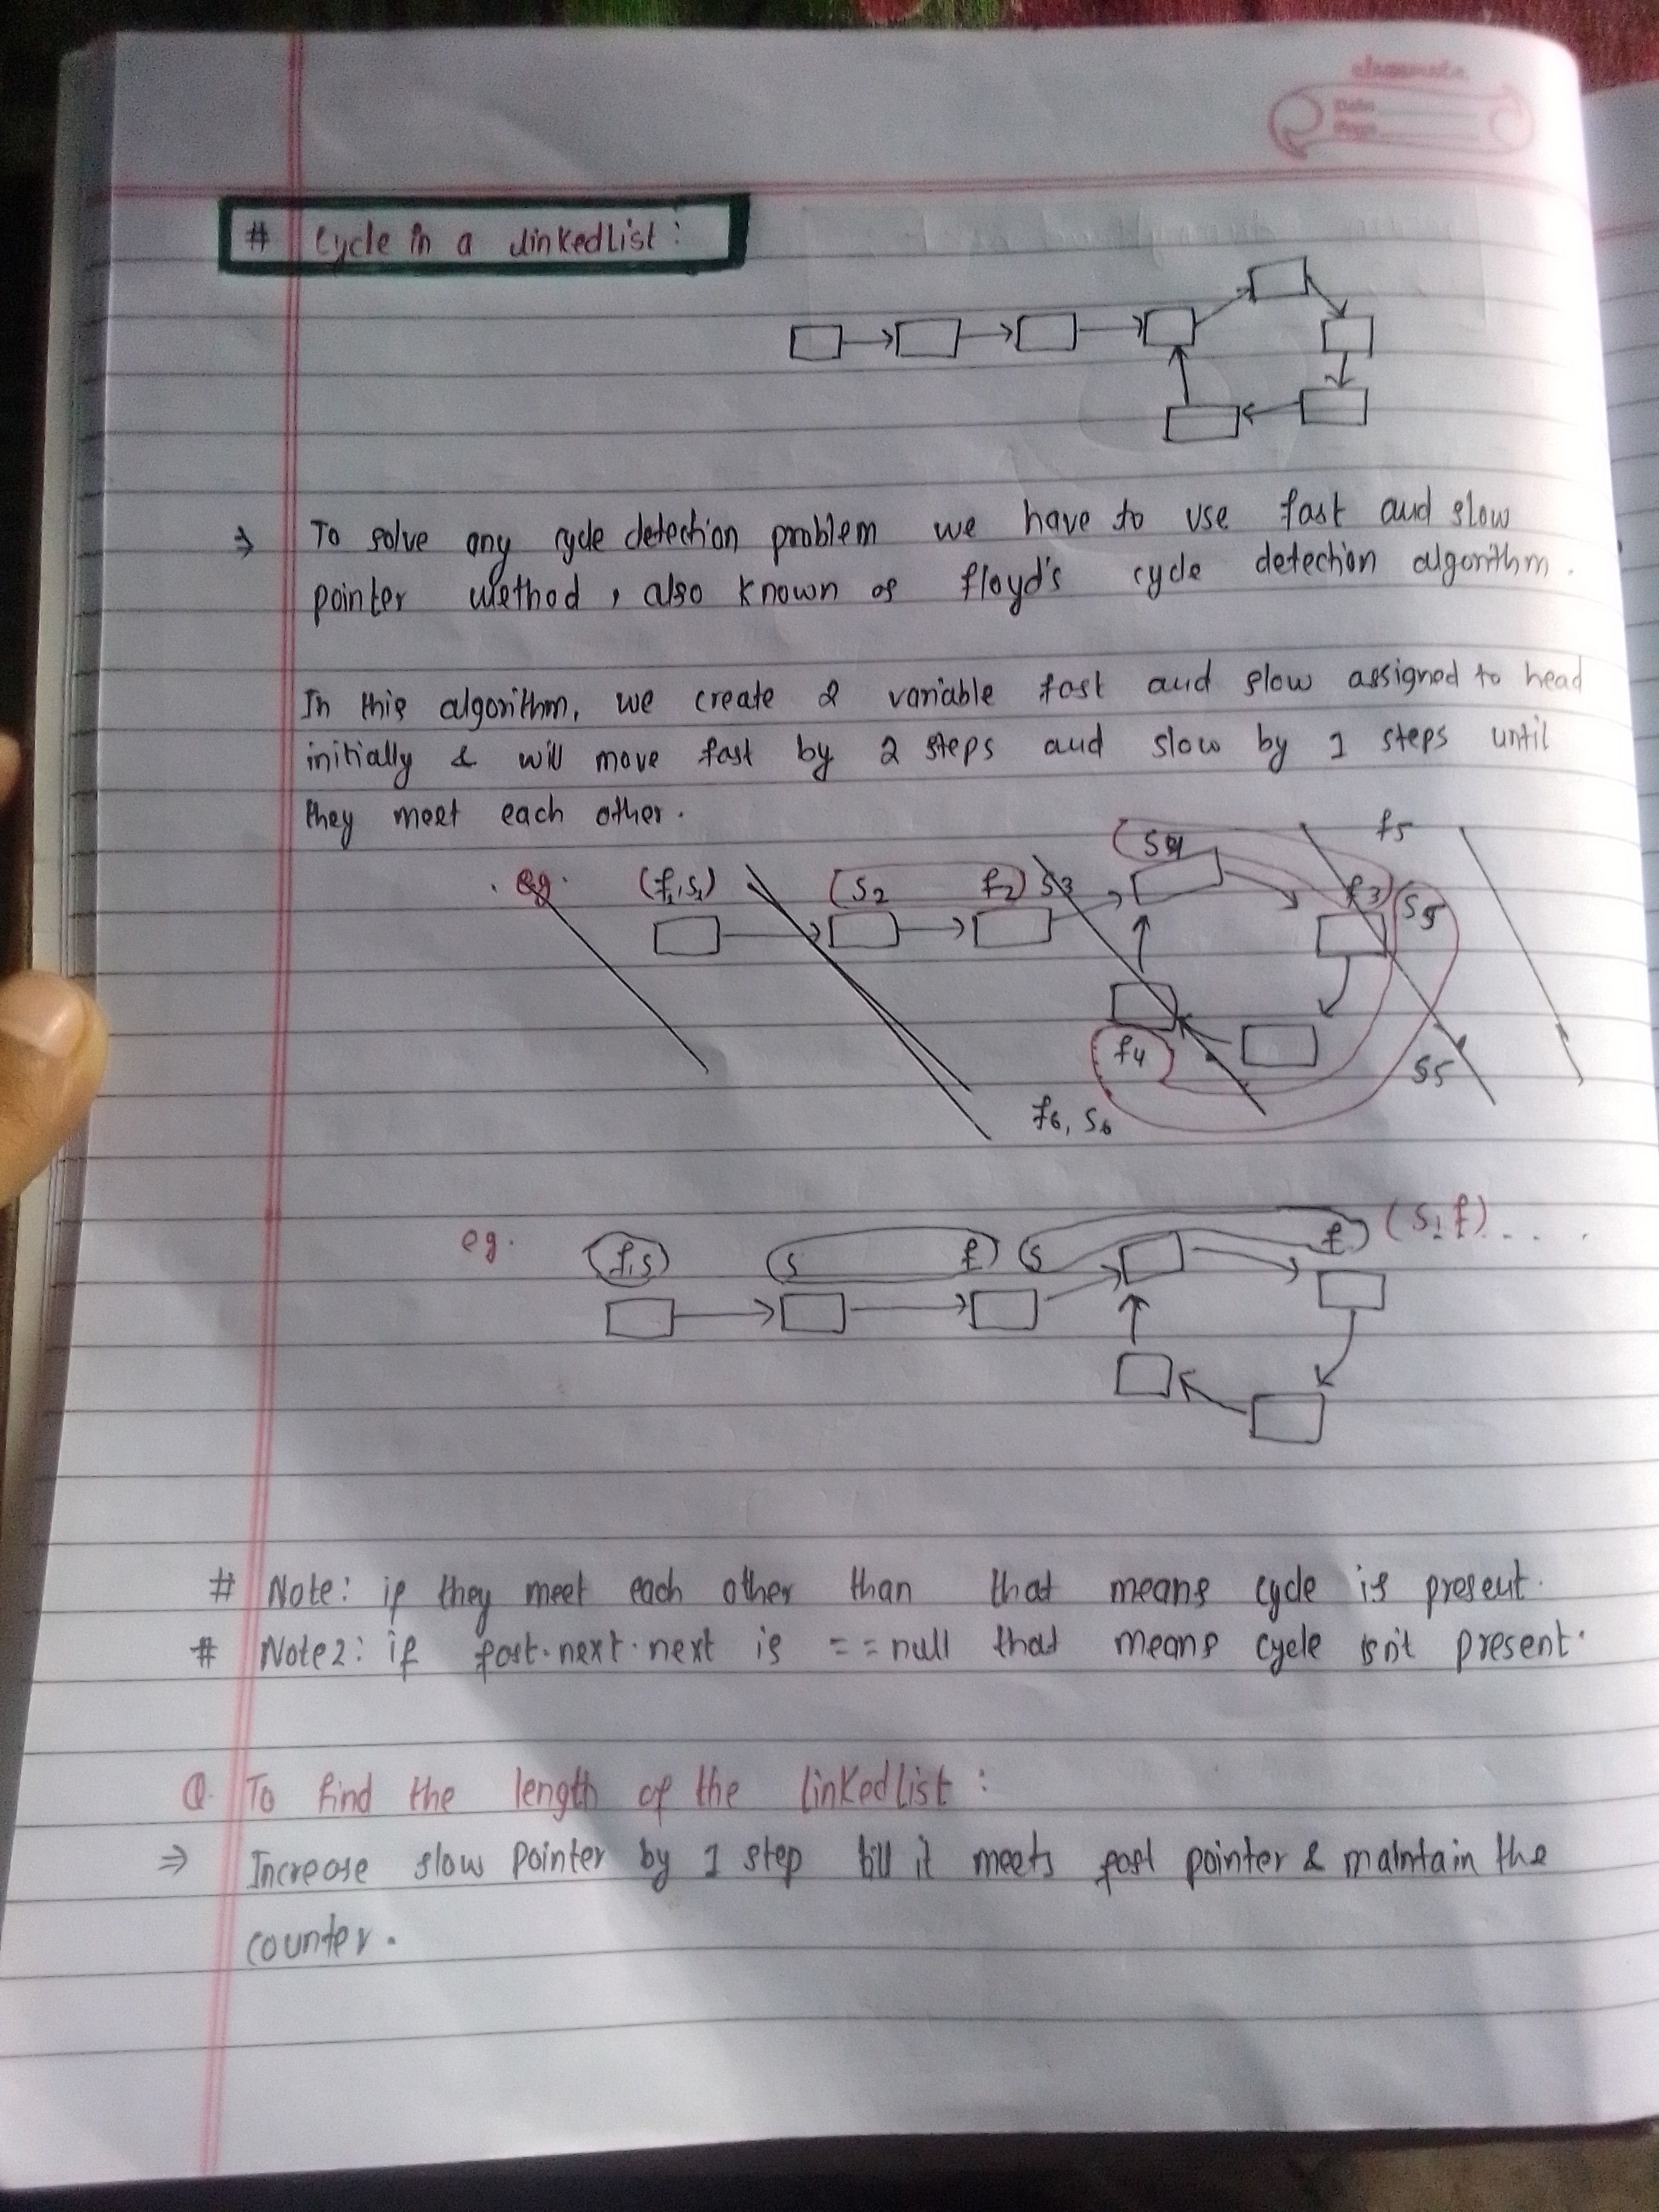 classmate
Date
Page
# Cycle in a Linkedlist:
⇒ To solve any cycle detection problem we have to use fast and slow
pointer method, also known as floyd's cycle detection algorithm.
In this algorithm, we create 2 variable fast and slow assigned to head
initially & will move fast by 2 steps and slow by 1 steps until
they meet each other.
f5
eg. (f1,s1) (s2 f2) s3 (s4 f3) s5
f4 s5
f6, s6
eg. (f,s) (s f) (s f) (s,f)....
# Note: if they meet each other than that means cycle is present.
# Note2: if fast.next.next is == null that means cycle isn't present.
Q. To find the length of the linkedlist:
⇒ Increase slow pointer by 1 step till it meets fast pointer & maintain the
counter.